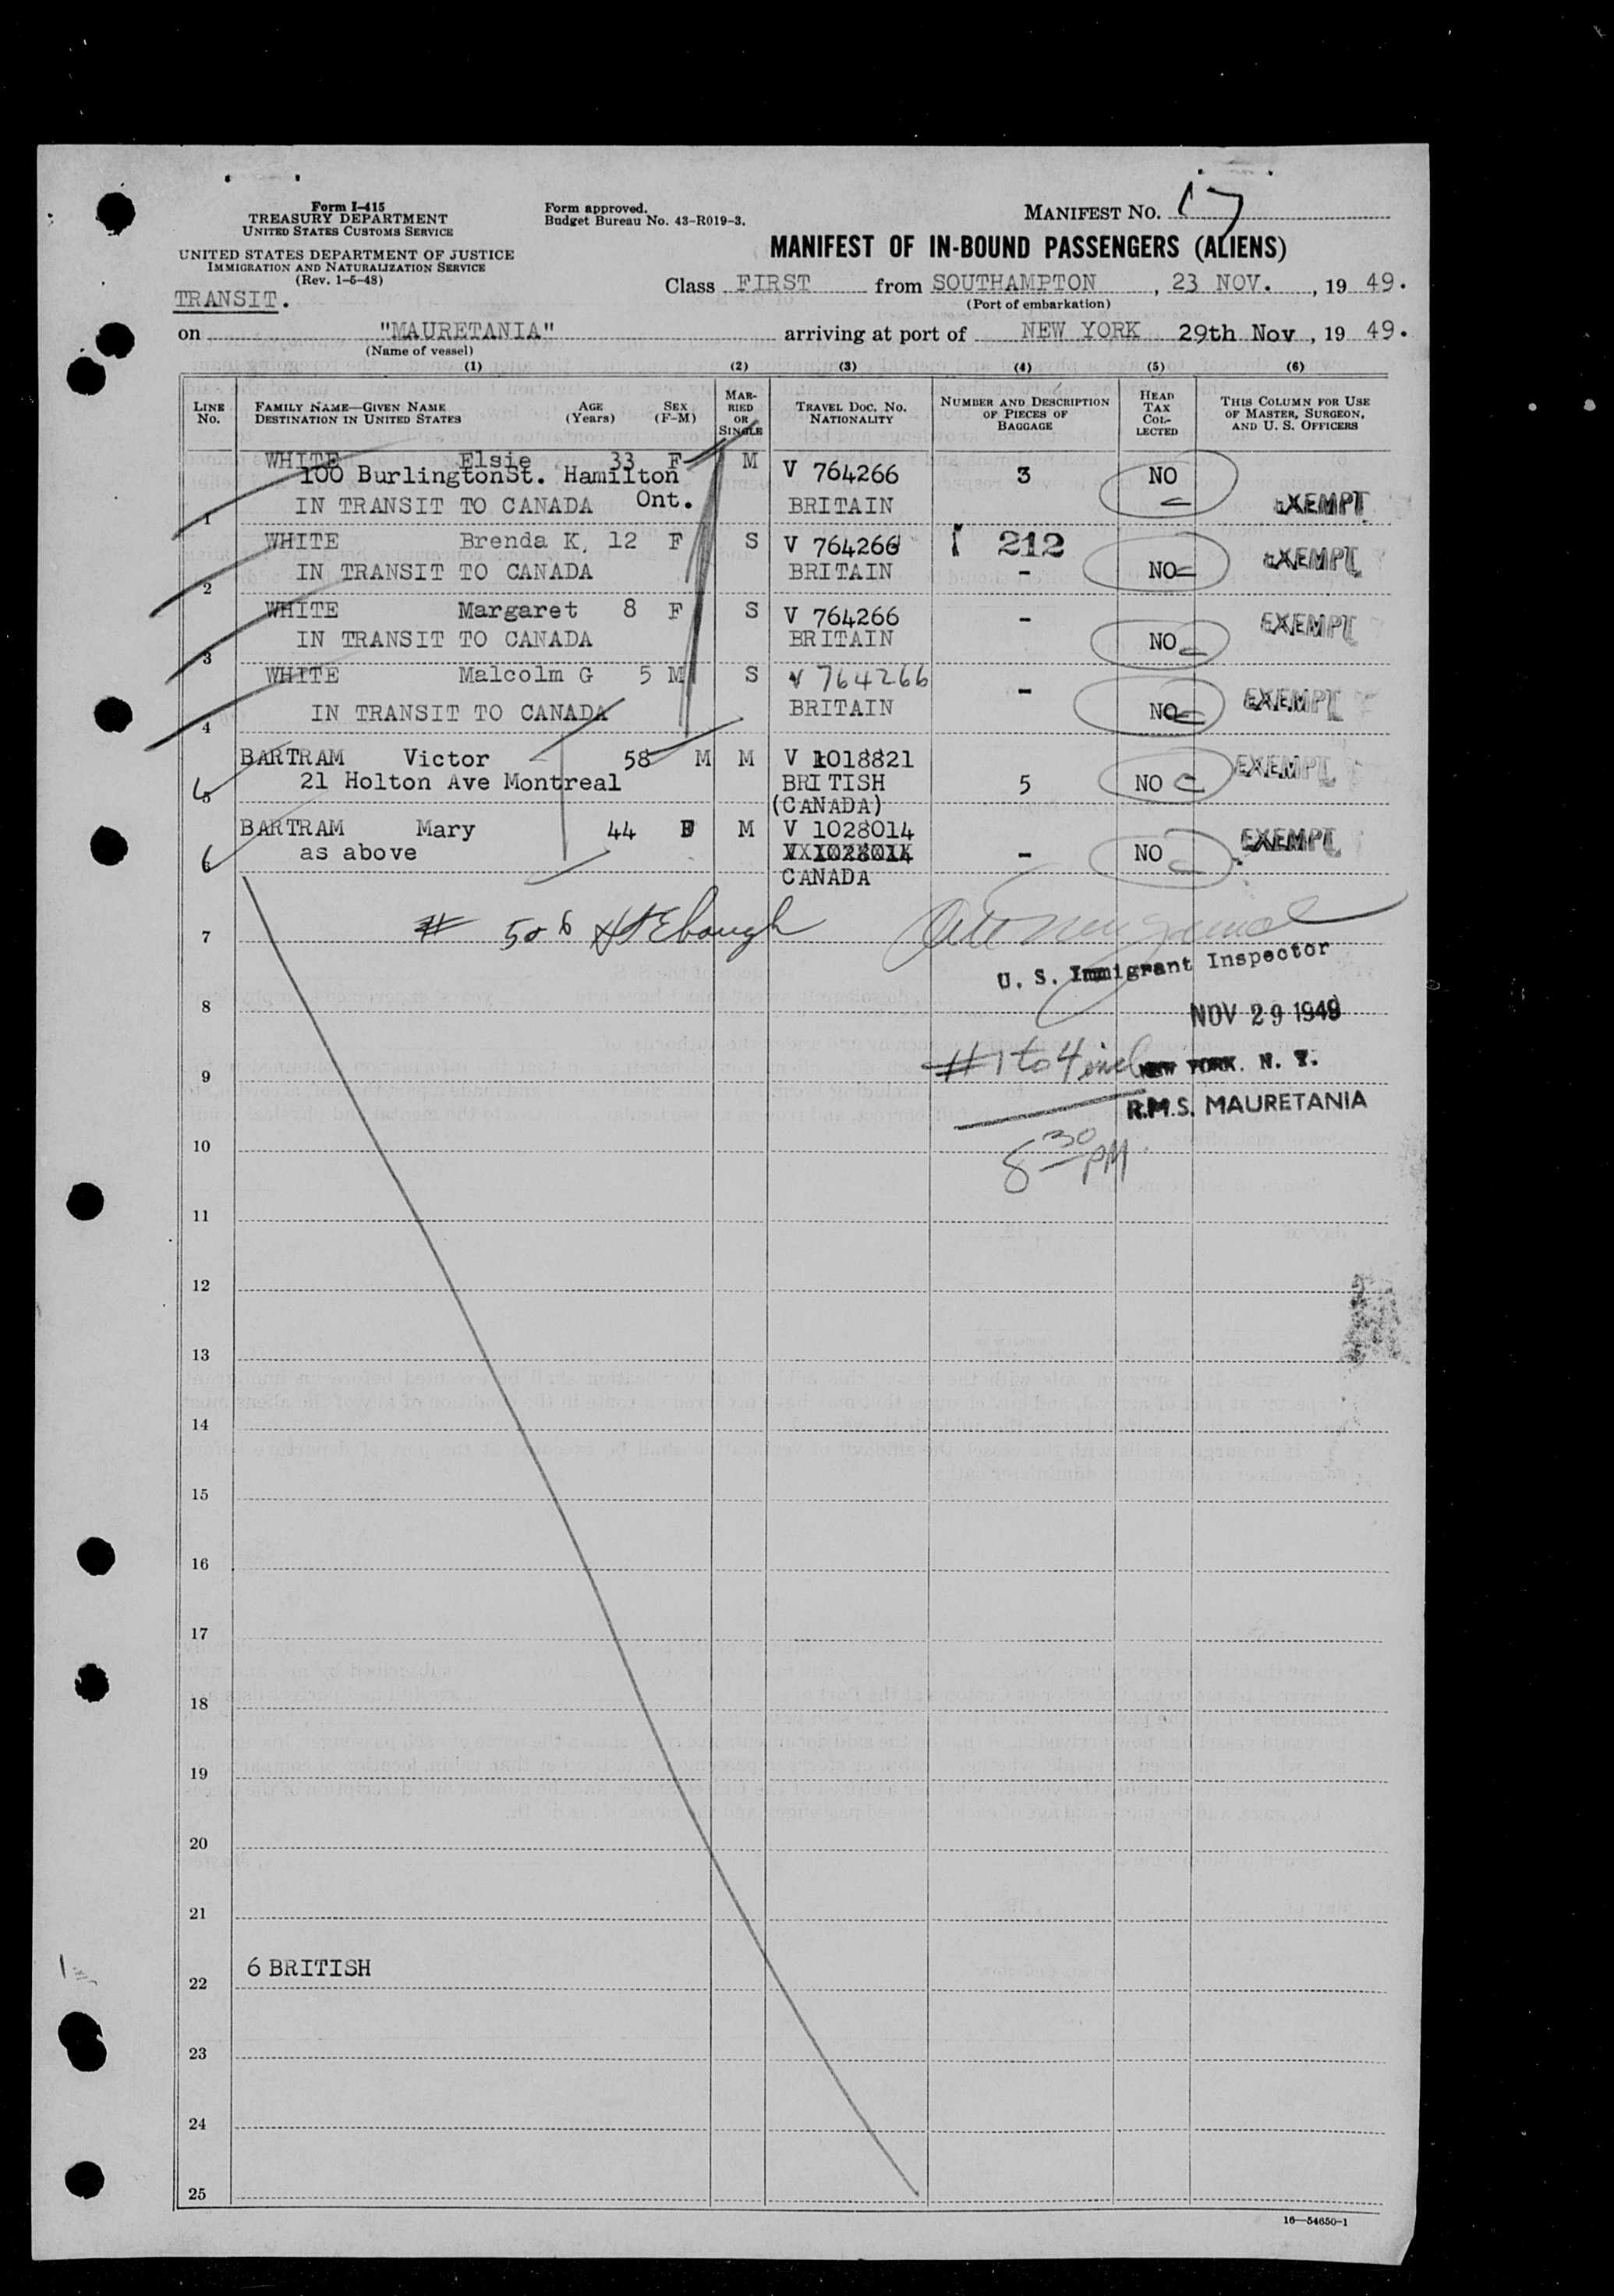 Form I-415
TREASURY DEPARTMENT
UNITED STATES CUSTOMS SERVICE
UNITED STATES DEPARTMENT OF JUSTICE
IMMIGRATION AND NATURALIZATION SERVICE
(Rev. 1-5-48)
TRANSIT.
Form approved.
Budget Bureau No. 43-R019-3.
MANIFEST NO. 17
MANIFEST OF IN-BOUND PASSENGERS (ALIENS)
Class FIRST from SOUTHAMPTON, 23 NOV., 1949.
(Port of embarkation)
on "MAURETANIA" arriving at port of NEW YORK 29th Nov, 1949.
(Name of vessel)
(1) (2) (3) (4) (5) (6)
LINE NO. FAMILY NAME—GIVEN NAME DESTINATION IN UNITED STATES AGE (Years) SEX (F-M) MARRIED OR SINGLE TRAVEL DOC. NO. NATIONALITY NUMBER AND DESCRIPTION OF PIECES OF BAGGAGE HEAD TAX COLLECTED THIS COLUMN FOR USE OF MASTER, SURGEON, AND U. S. OFFICERS
WHITE Elsie 33 F M V 764266 3 NO
100 BurlingtonSt. Hamilton
1 IN TRANSIT TO CANADA Ont. BRITAIN EXEMPT
WHITE Brenda K. 12 F S V 764266 1 212
2 IN TRANSIT TO CANADA BRITAIN - NO EXEMPT
WHITE Margaret 8 F S V 764266 - EXEMPT
3 IN TRANSIT TO CANADA BRITAIN NO
WHITE Malcolm G 5 M S V 764266 -
4 IN TRANSIT TO CANADA BRITAIN NO EXEMPT
BARTRAM Victor 58 M M V 1018821 EXEMPT
5 21 Holton Ave Montreal BRITISH 5 NO
(CANADA)
BARTRAM Mary 44 F M V 1028014 EXEMPT
6 as above V 1028014 - NO
CANADA
7 # 5 & 6
U. S. Immigrant Inspector
8 NOV 29 1949
9 # 1 to 4 incl NEW YORK, N. Y.
R.M.S. MAURETANIA
10 8 30 PM
11
12
13
14
15
16
17
18
19
20
21
22 6 BRITISH
23
24
25
16—54650-1